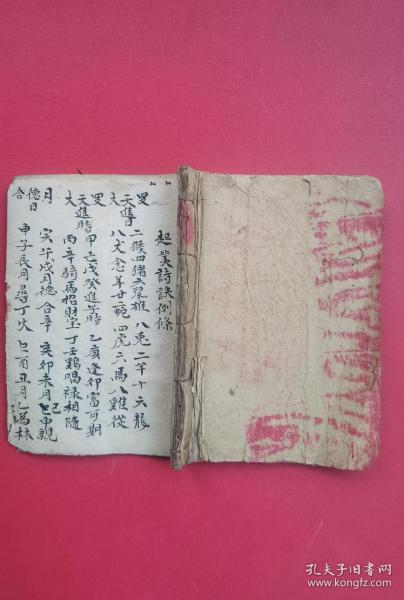 起笑詩訣例條
二猴四猪六 雄 八兎二羊十六龍
八犬念羊廿二 四虎六馬八雞從
天進時 甲 戊癸進子時 乙庚逢卯富可期
丙辛騎馬招財宝 丁壬鷄唱禄相隨
月德合日 寅午戌月德合辛 亥卯未月己中親
申子辰月尋丁火 巳酉丑月乙為林
孔夫子旧书网
www.kongfz.com